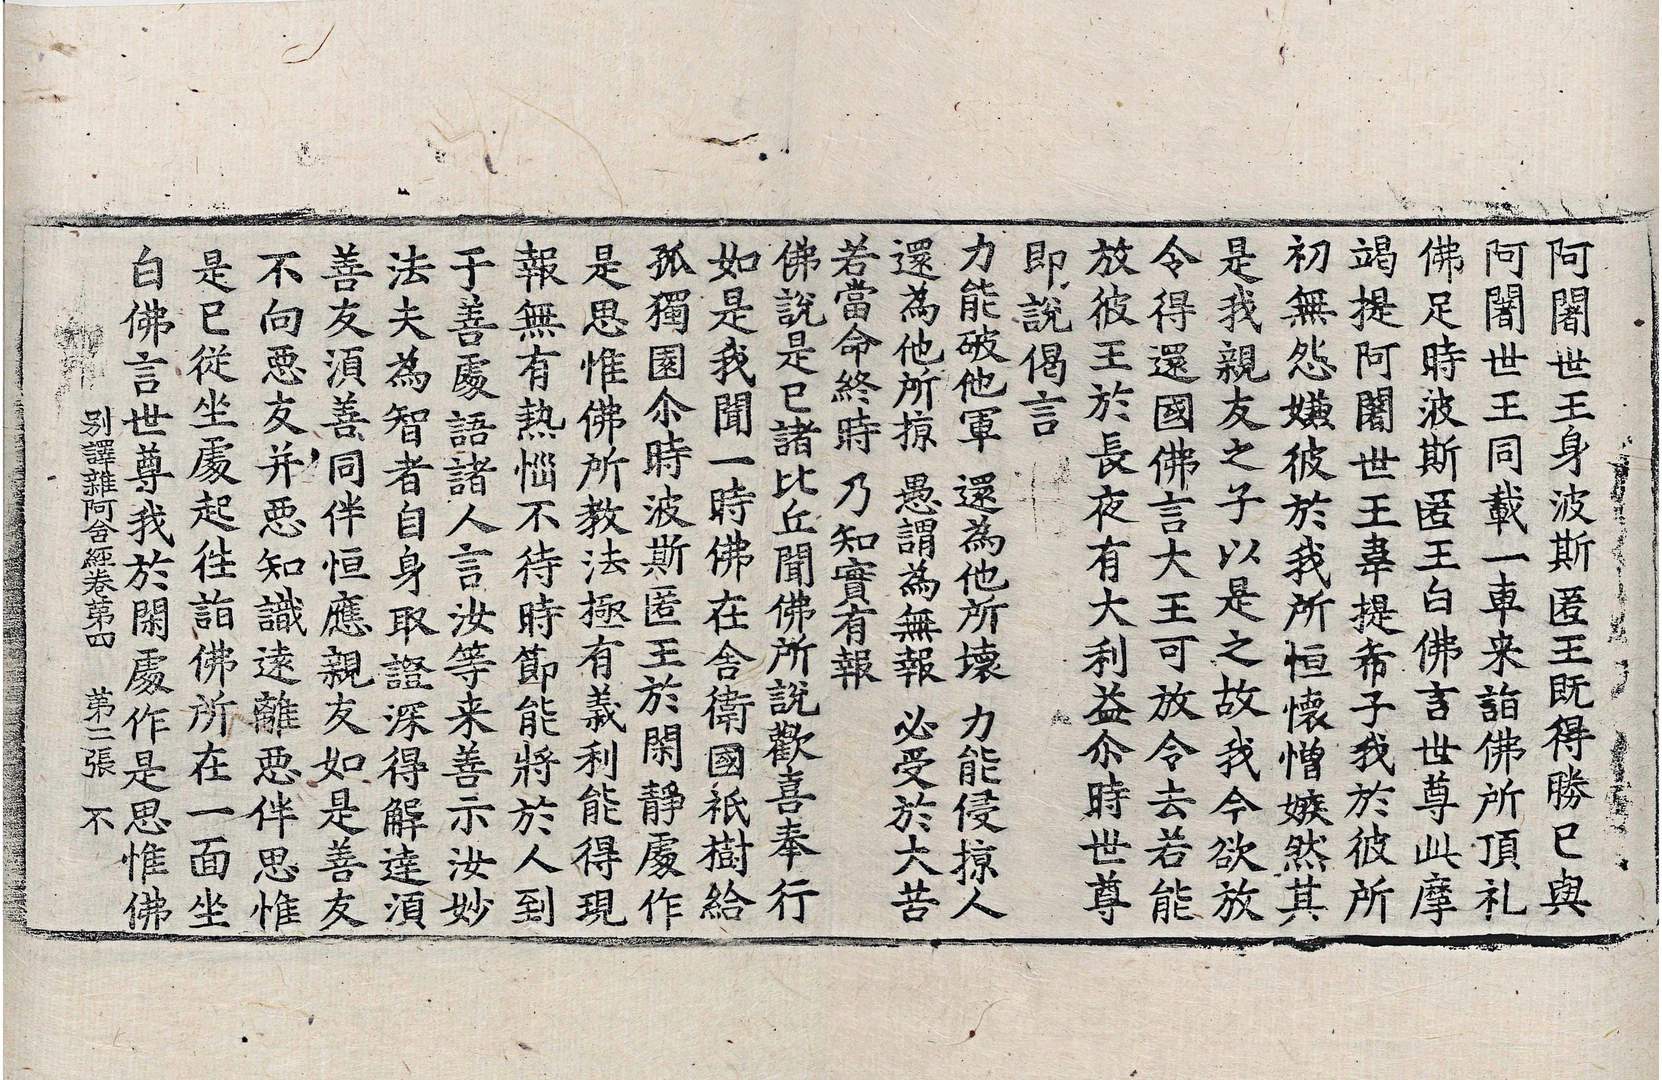 阿闍世王身波斯匿王既得勝已與
阿闍世王同載一車来詣佛所頂礼
佛足時波斯匿王白佛言世尊此摩
竭提阿闍世王韋提希子我於彼所
初無怨嫌彼於我所恒懷憎嫉然其
是我親友之子以是之故我今欲放
令得還國佛言大王可放令去若能
放彼王於長夜有大利益尒時世尊
即說偈言
力能破他軍　還為他所壞　力能侵掠人
還為他所掠　愚謂為無報　必受於大苦
若當命終時　乃知實有報
佛說是已諸比丘聞佛所說歡喜奉行
如是我聞一時佛在舍衛國祇樹給
孤獨園尒時波斯匿王於閑靜處作
是思惟佛所教法極有義利能得現
報無有熱惱不待時節能將於人到
于善處語諸人言汝等来善示汝妙
法夫為智者自身取證深得解達湏
善友湏善同伴恒應親友如是善友
不向惡友并惡知識逺離惡伴思惟
是已從坐處起往詣佛所在一面坐
白佛言世尊我於閑處作是思惟佛
别譯雜阿含經卷第四　第二張　不